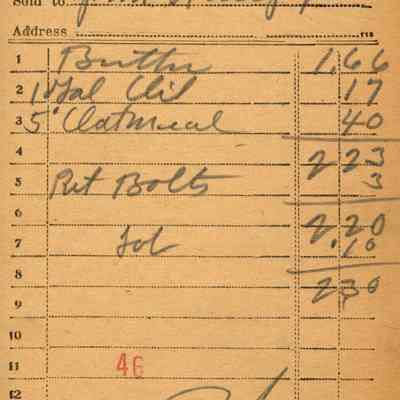 Sold to
Address
1 Butter 1.66
2 1 Gal Oil 17
3 5 Oatmeal 40
4 2 23
5 Ret Bolts 3
6 2.20
7 Tob .10
8 2 30
9
10
11 46
12